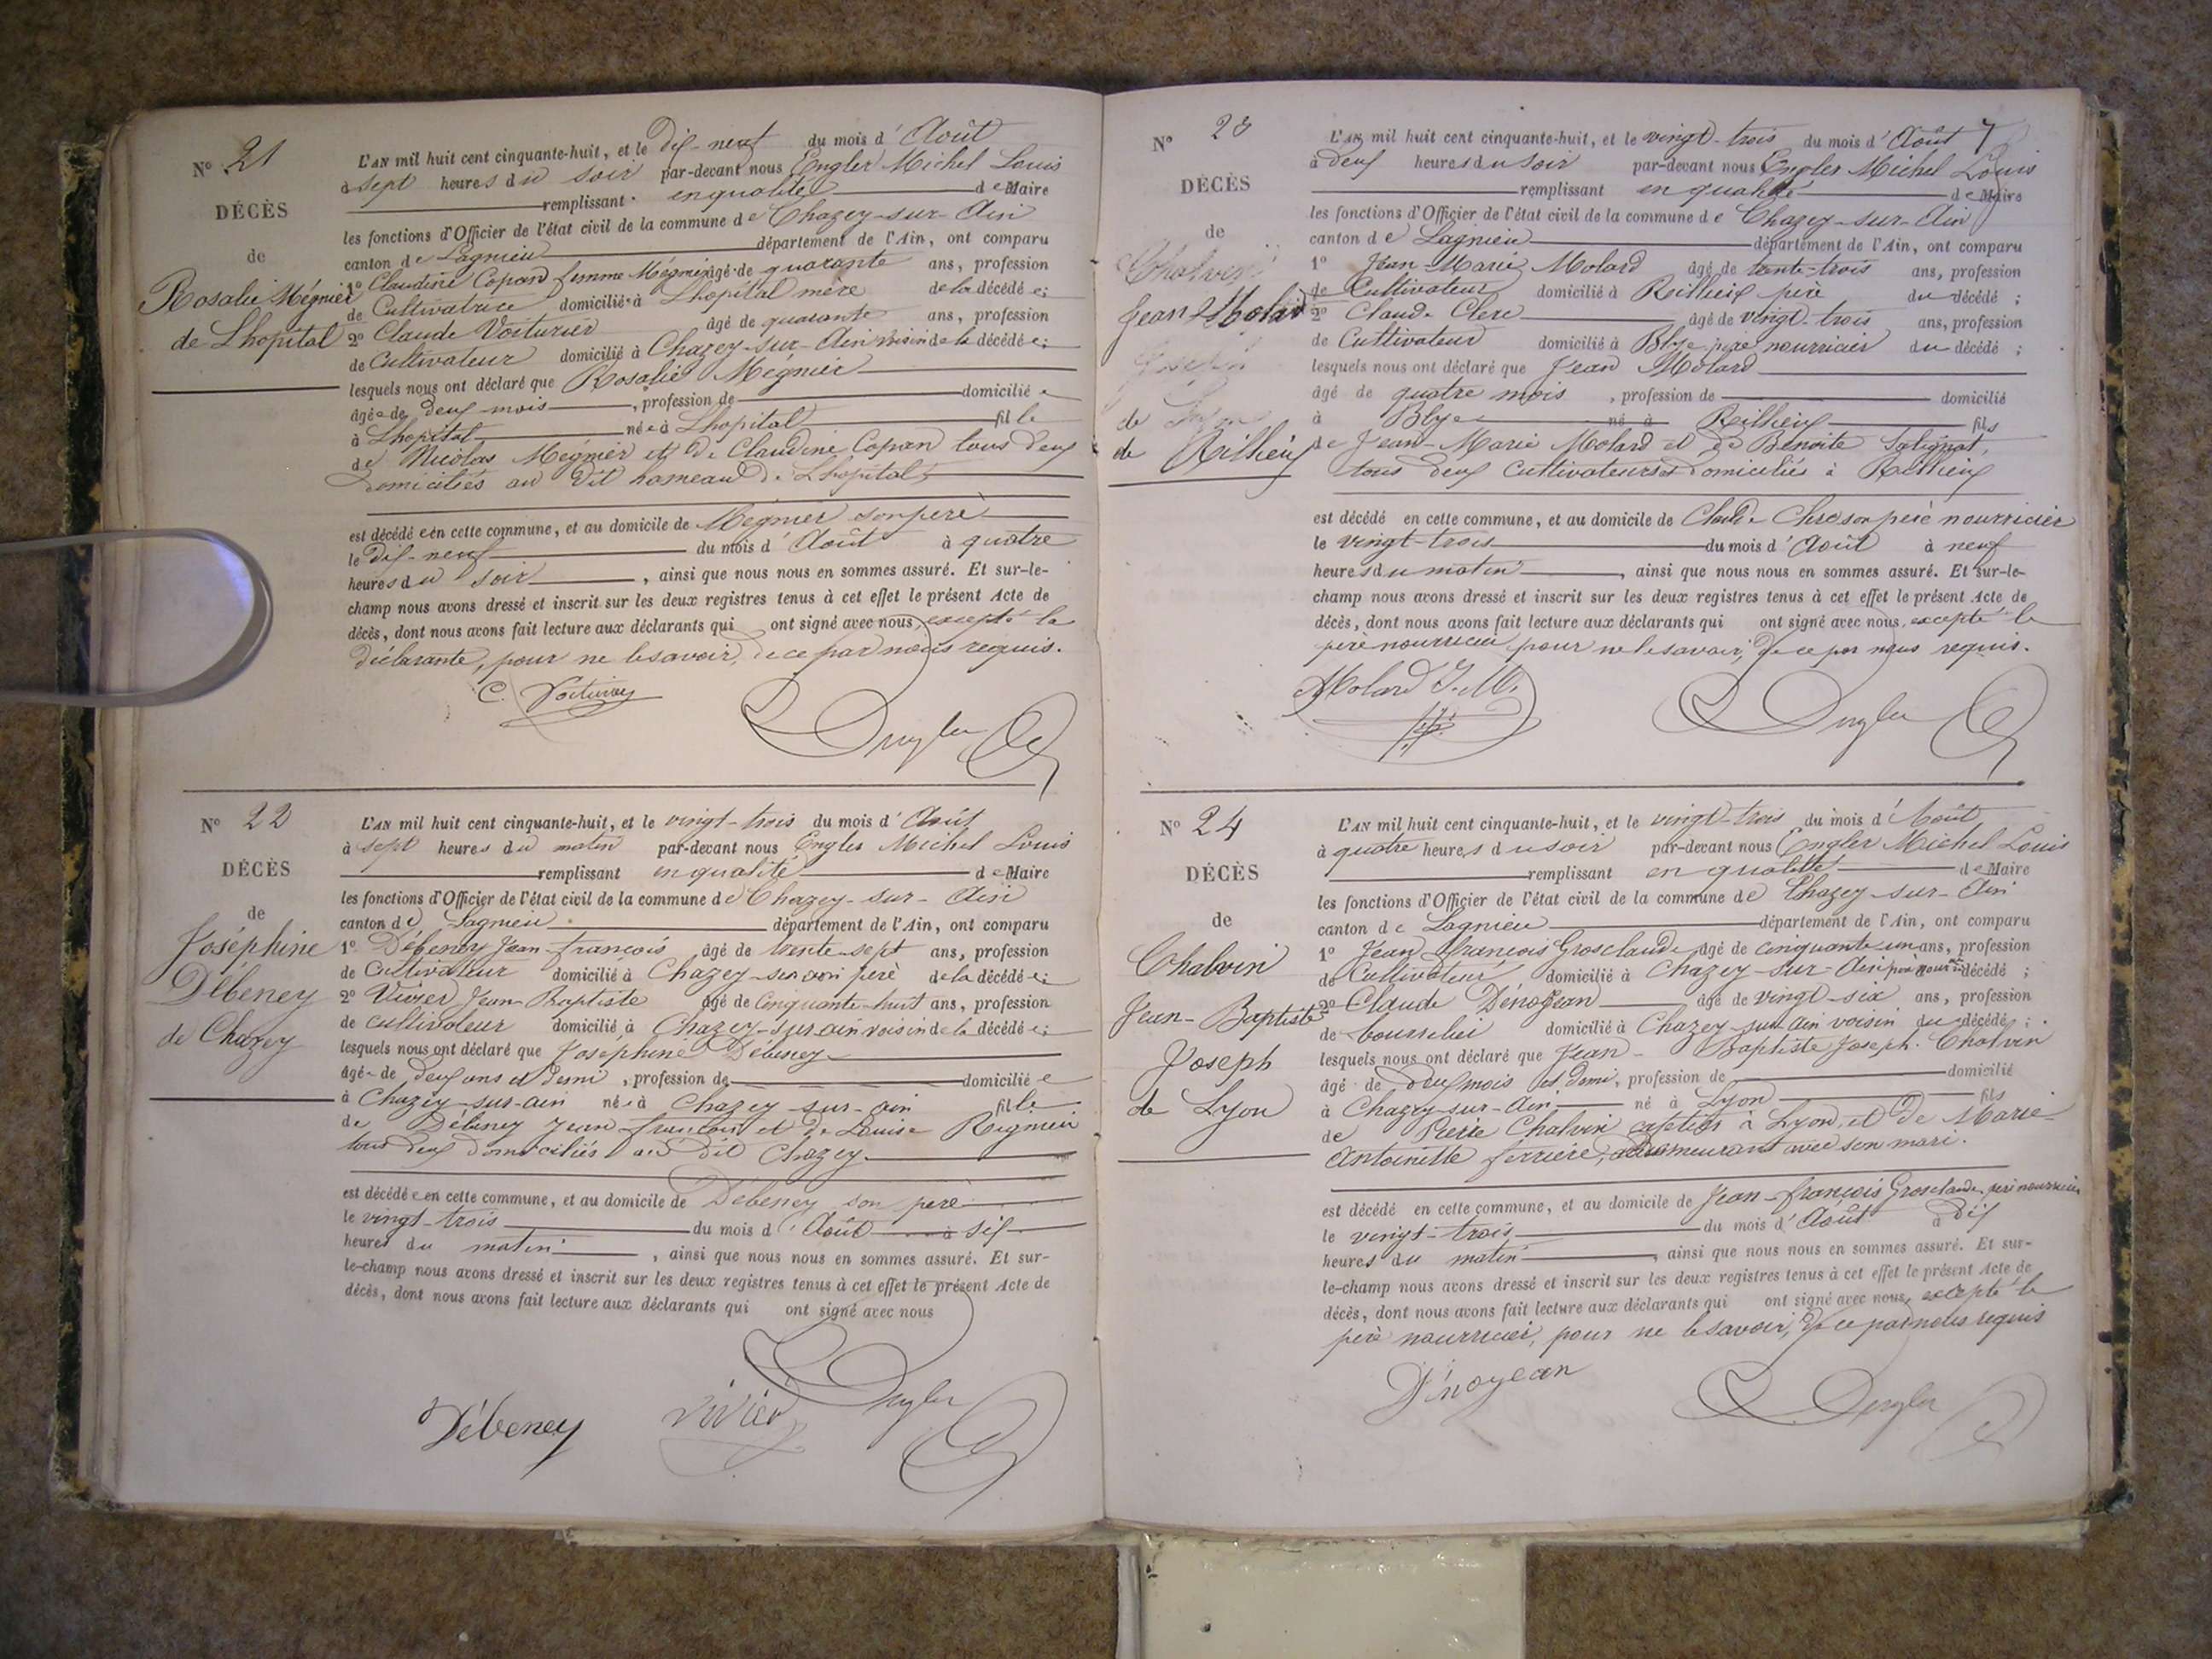 Nº 21
DÉCÈS
de
Rosalie Mégnier
de Lhopital
L'AN mil huit cent cinquante-huit, et le dix-neuf du mois d'Août
à sept heures du soir par-devant nous Engler Michel Louis
remplissant en qualité de Maire
les fonctions d'Officier de l'état civil de la commune de Chazey-sur-Ain
canton de Lagnieu département de l'Ain, ont comparu
1º Claudine Copard femme Mégnier âgé de quarante ans, profession
de Cultivatrice domicilié à Lhopital mère de la décédée;
2º Claude Voiturier âgé de quarante ans, profession
de Cultivateur domicilié à Chazey-sur-Ain voisin de la décédée;
lesquels nous ont déclaré que Rosalie Mégnier
âgée de deux mois, profession de domiciliée
à Lhopital née à Lhopital fille
de Nicolas Mégnier et de Claudine Copan tous deux
domiciliés au dit hameau de Lhopital
est décédée en cette commune, et au domicile de Mégnier son père
le dix-neuf du mois d'Août à quatre
heures du soir, ainsi que nous nous en sommes assuré. Et sur-le-
champ nous avons dressé et inscrit sur les deux registres tenus à cet effet le présent Acte de
décès, dont nous avons fait lecture aux déclarants qui ont signé avec nous, excepté la
déclarante, pour ne le savoir, de ce par nous requis.
C. Voiturier
Engler
Nº 22
DÉCÈS
de
Joséphine
Débeney
de Chazey
L'AN mil huit cent cinquante-huit, et le vingt-trois du mois d'Août
à sept heures du matin par-devant nous Engler Michel Louis
remplissant en qualité de Maire
les fonctions d'Officier de l'état civil de la commune de Chazey-sur-Ain
canton de Lagnieu département de l'Ain, ont comparu
1º Débeney Jean-françois âgé de trente-sept ans, profession
de Cultivateur domicilié à Chazey-sur-ain père de la décédée;
2º Vivier Jean-Baptiste âgé de Cinquante-huit ans, profession
de cultivateur domicilié à Chazey-sur-ain voisin de la décédée;
lesquels nous ont déclaré que Joséphine Débeney
âgée de deux ans et demi, profession de domiciliée
à Chazey-sur-ain née à Chazey-sur-ain fille
de Débeney Jean-françois et de Louise Regnier
tous deux domiciliés au dit Chazey.
est décédée en cette commune, et au domicile de Débeney son père
le vingt-trois du mois d'Août à six
heures du matin, ainsi que nous nous en sommes assuré. Et sur-
le-champ nous avons dressé et inscrit sur les deux registres tenus à cet effet le présent Acte de
décès, dont nous avons fait lecture aux déclarants qui ont signé avec nous
Engler
Débeney Vivier
Nº 23
DÉCÈS
de
Chalvin
Jean Molard
Joseph
de Lyon
de Rillieux
L'AN mil huit cent cinquante-huit, et le vingt-trois du mois d'Août 7
à deux heures du soir par-devant nous Engler Michel Louis
remplissant en qualité de Maire
les fonctions d'Officier de l'état civil de la commune de Chazey-sur-Ain
canton de Lagnieu département de l'Ain, ont comparu
1º Jean-Marie Molard âgé de trente-trois ans, profession
de Cultivateur domicilié à Rillieux père du décédé;
2º Claude Clerc âgé de vingt-trois ans, profession
de Cultivateur domicilié à Blye père nourricier du décédé;
lesquels nous ont déclaré que Jean Molard
âgé de quatre mois, profession de domicilié
à Blye né à Rillieux fils
de Jean-Marie Molard et de Benoite
tous deux cultivateurs et domiciliés à Rillieux
est décédé en cette commune, et au domicile de Claude Clerc son père nourricier
le vingt-trois du mois d'Août à neuf
heures du matin, ainsi que nous nous en sommes assuré. Et sur-le-
champ nous avons dressé et inscrit sur les deux registres tenus à cet effet le présent Acte de
décès, dont nous avons fait lecture aux déclarants qui ont signé avec nous, excepté le
père nourricier pour ne le savoir, de ce par nous requis.
Molard J. M.
Engler
Nº 24
DÉCÈS
de
Chalvin
Jean-Baptiste
Joseph
de Lyon
L'AN mil huit cent cinquante-huit, et le vingt-trois du mois d'Août
à quatre heures du soir par-devant nous Engler Michel Louis
remplissant en qualité de Maire
les fonctions d'Officier de l'état civil de la commune de Chazey-sur-Ain
canton de Lagnieu département de l'Ain, ont comparu
1º Jean François Grosclaude âgé de cinquante un ans, profession
de Cultivateur domicilié à Chazey-sur-Ain père nourricier décédé;
2º Claude Dénojean âgé de vingt-six ans, profession
de bourrelier domicilié à Chazey-sur-ain voisin du décédé;
lesquels nous ont déclaré que Jean-Baptiste Joseph Chalvin
âgé de deux mois et demi, profession de domicilié
à Chazey-sur-Ain né à Lyon fils
de Pierre Chalvin cafetier à Lyon, et de Marie
Antoinette ferrière, demeurant avec son mari.
est décédé en cette commune, et au domicile de Jean-françois Grosclaude père nourricier
le vingt-trois du mois d'Août à dix
heures du matin, ainsi que nous nous en sommes assuré. Et sur-
le-champ nous avons dressé et inscrit sur les deux registres tenus à cet effet le présent Acte de
décès, dont nous avons fait lecture aux déclarants qui ont signé avec nous, excepté le
père nourricier, pour ne le savoir, de ce par nous requis
Dénojean
Engler